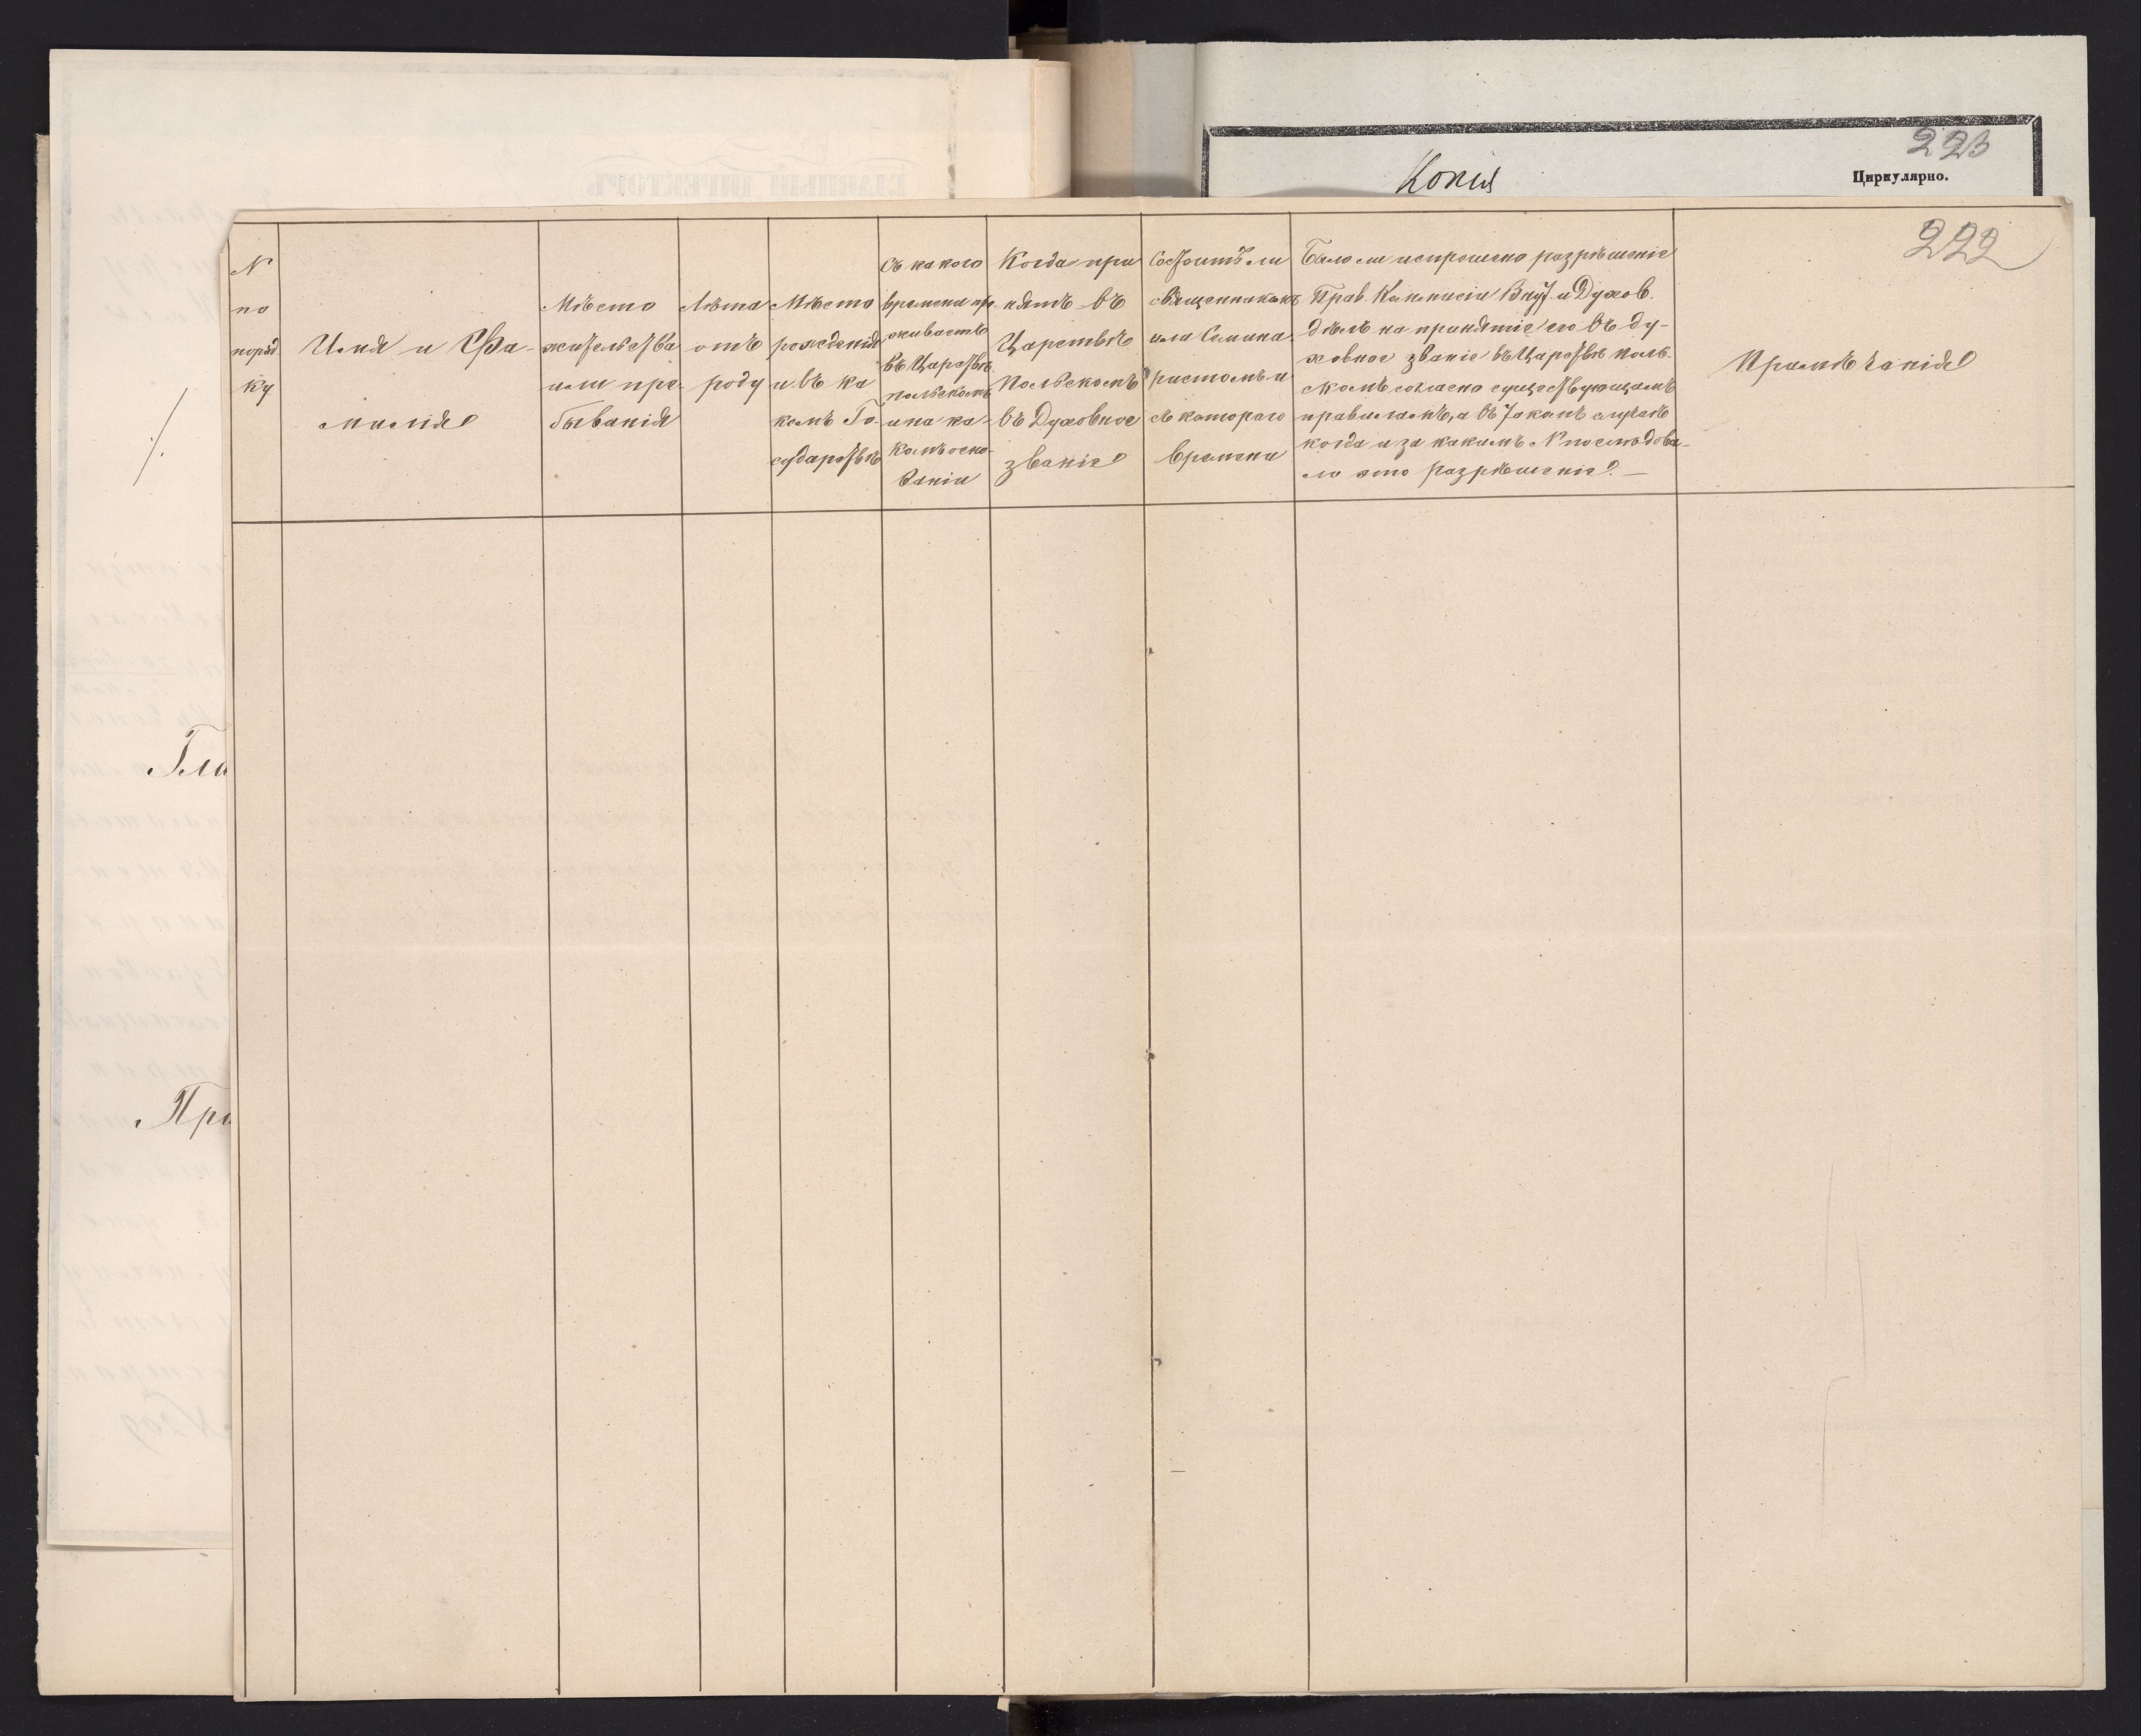 223
Копія
Циркулярно.
222
N
по
поряд
ку
Имя и Фа-
милія
Мѣсто
жительства
или пре-
быванія
Лѣта
отъ
роду
Мѣсто
рожденія
и въ ка
комъ Го-
сударствѣ
Съ какого
времени пр
живаетъ
въ Царствѣ
польскомъ
и на ка-
комъ осно-
ваніи
Когда при
нятъ въ
Царствѣ
Польскомъ
въ Духовное
званіе
Состоитъ ли
священникомъ
или Семина
ристомъ и
съ котораго
времени
Было ли испрошено разрѣшеніе
Прав. Коммисіи Внут. и Духов.
дѣлъ на принятіе его въ ду-
ховное званіе въ Царствѣ Поль-
скомъ согласно существующимъ
правиламъ, а въ такомъ случаѣ
когда и за какимъ N последова-
ло это разрѣшеніе? —
Примѣчанія
Гла
При